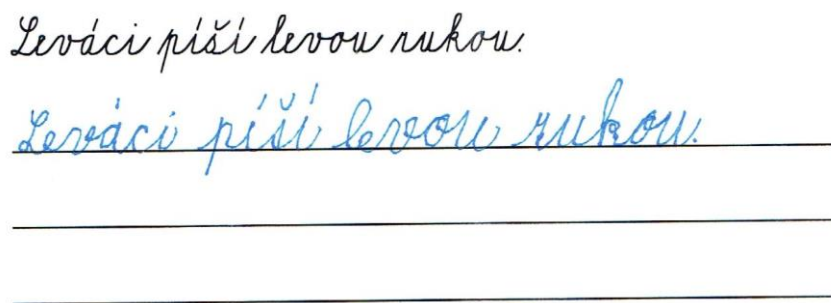 Leváci píší levou rukou.
Leváci píší levou rukou.